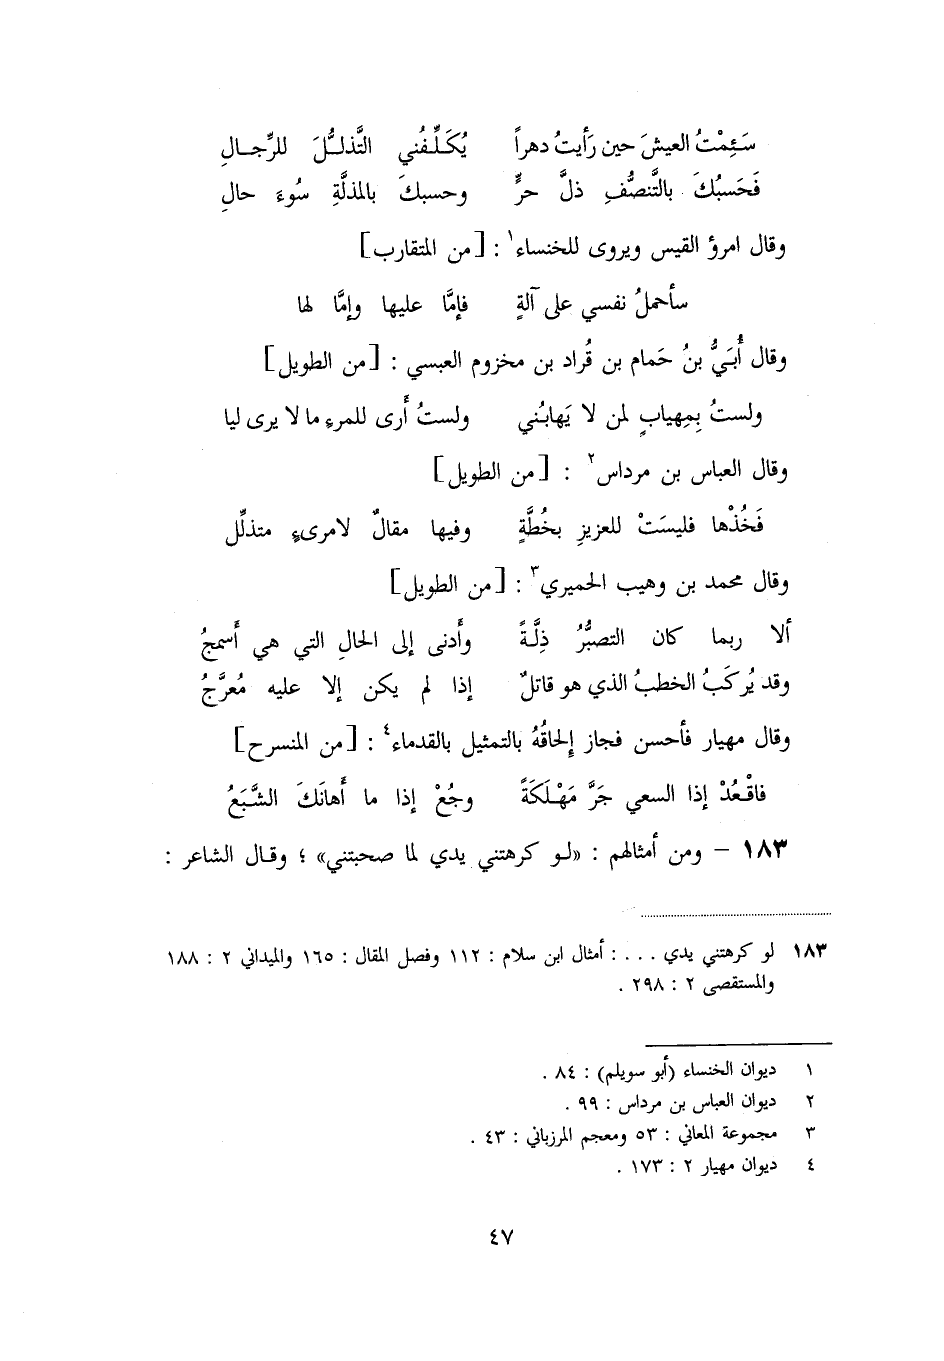 سَئِمْتُ العيشَ حين رَأيتُ دهراً يُكَلِّفُني التَّذلُّلَ للرِّجالِ
فَحَسبُكَ بالتَّنصُّفِ ذلَّ حرٍّ وحسبكَ بالمذلَّةِ سُوءَ حالِ
وقال امرؤ القيس ويروى للخنساء١ : [من المتقارب]
سأحملُ نفسي على آلةٍ فإمَّا عليها وإمَّا لها
وقال أُبَيُّ بنُ حَمام بن قُراد بن مخزوم العبسي : [من الطويل]
ولستُ بِمِهيابٍ لمن لا يَهابُني ولستُ أَرى للمرءِ ما لا يرى ليا
وقال العباس بن مرداس٢ : [من الطويل]
فَخُذْها فليسَتْ للعزيزِ بخُطَّةٍ وفيها مقالٌ لامرىءٍ متذلِّل
وقال محمد بن وهيب الحميري٣ : [من الطويل]
ألا ربما كان التصبُّرُ ذِلَّةً وأَدنى إلى الحالِ التي هي أَسمجُ
وقد يُركَبُ الخطبُ الذي هو قاتلٌ إذا لم يكن إلا عليه مُعرَّجُ
وقال مهيار فأحسن فجاز إلحاقُهُ بالتمثيل بالقدماء٤ : [من المنسرح]
فاقْعُدْ إذا السعي جَرَّ مَهْلَكَةً وجُعْ إذا ما أَهانَكَ الشَّبَعُ
١٨٣ – ومن أمثالهم : «لو كرهتني يدي لما صحبتني» ؛ وقال الشاعر :
١٨٣ لو كرهتني يدي . . . : أمثال ابن سلام : ١١٢ وفصل المقال : ١٦٥ والميداني ٢ : ١٨٨
والمستقصى ٢ : ٢٩٨ .
١ ديوان الخنساء (أبو سويلم) : ٨٤ .
٢ ديوان العباس بن مرداس : ٩٩ .
٣ مجموعة المعاني : ٥٣ ومعجم المرزباني : ٤٣ .
٤ ديوان مهيار ٢ : ١٧٣ .
٤٧